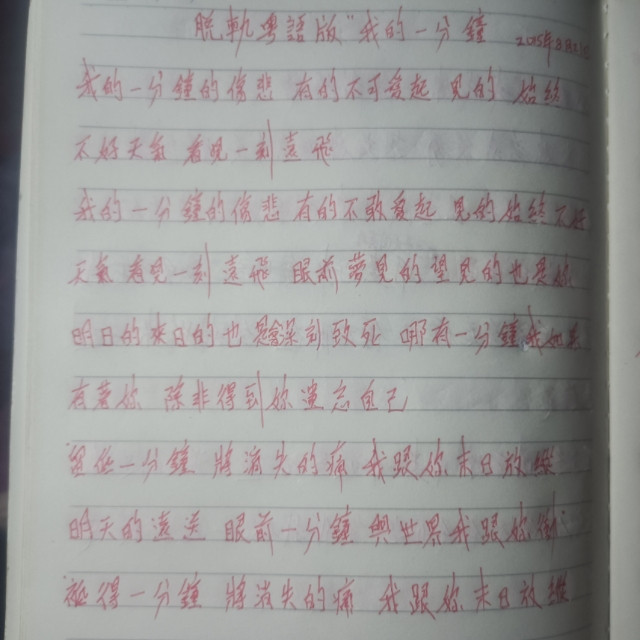 脫軌粵語版"我的一分鐘 2015年8月
我的一分鐘的傷悲 有的不可愛起 見的 始終
不好天氣 看見一刻遠飛
我的一分鐘的傷悲 有的不敢愛起 見的始終不好
天氣 看見一刻遠飛 眼前夢見的望見的也是妳
明日的來日的也 到致死 哪有一分鐘我如去
有著妳 除非得到妳遺忘自己
留低一分鐘 將消失的痛 我跟你末日放縱
明天的遠送 眼前一分鐘 與世界我跟妳
祗得一分鐘 將消失的痛 我跟妳末日放縱